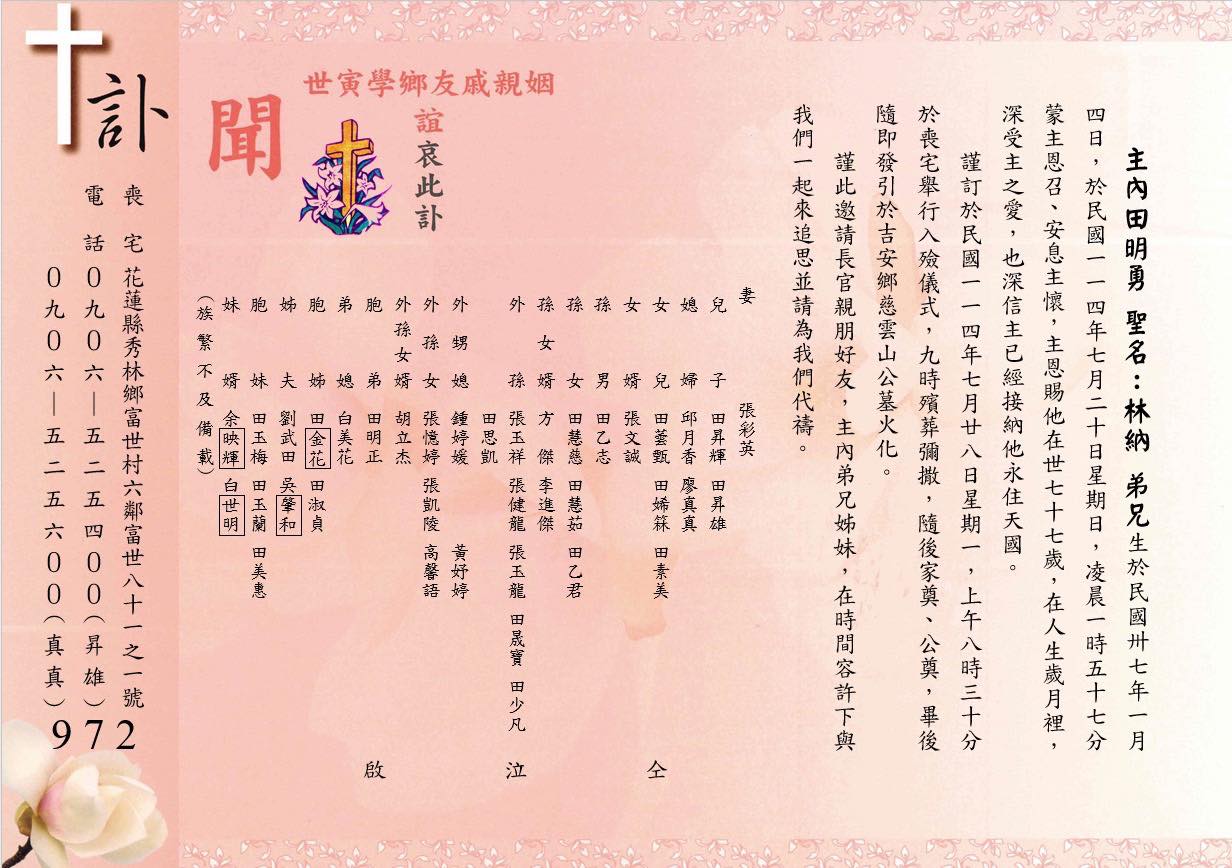 主內田明勇 聖名：林納 弟兄生於民國卅七年一月
四日，於民國一一四年七月二十日星期日，凌晨一時五十七分
蒙主恩召、安息主懷，主恩賜他在世七十七歲，在人生歲月裡，
深受主之愛，也深信主已經接納他永住天國。
謹訂於民國一一四年七月廿八日星期一，上午八時三十分
於喪宅舉行入殮儀式，九時殯葬彌撒，隨後家奠、公奠，畢後
隨即發引於吉安鄉慈雲山公墓火化。
謹此邀請長官親朋好友，主內弟兄姊妹，在時間容許下與
我們一起來追思並請為我們代禱。
妻 張彩英
兒子 田昇輝 田昇雄
媳婦 邱月香 廖真真
女兒 田蕓甄 田姵箖 田素美
女婿 張文誠
孫男 田乙志
孫女 田慧慈 田慧茹 田乙君
孫女婿 方傑 李進傑
外孫 張玉祥 張健龍 張玉龍 田晟寶 田少凡
田思凱
外甥媳 鍾婷媛 黃妤婷
外孫女 張憶婷 張凱陵 高馨語
外孫女婿 胡立杰
胞弟 田明正
弟媳 白美花
胞姊 田金花 田淑貞
姊夫 劉武田 吳肇和
胞妹 田玉梅 田玉蘭 田美惠
妹婿 余映輝 白世明
（族繁不及備載）
仝泣啟
世寅學鄉友戚親姻
誼哀此訃
聞
訃
喪宅 花蓮縣秀林鄉富世村六鄰富世八十一之一號
電話 0九0六—五二五四00（昇雄）
0九0六—五二五六00（真真）
972